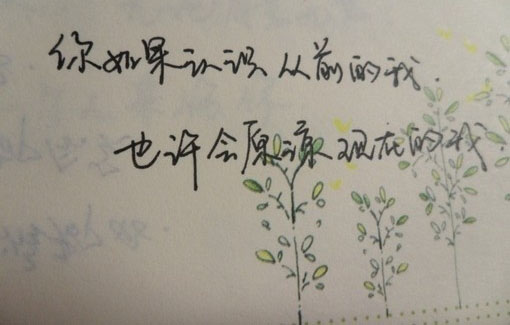 你如果认识从前的我.
也许会原谅现在的我.